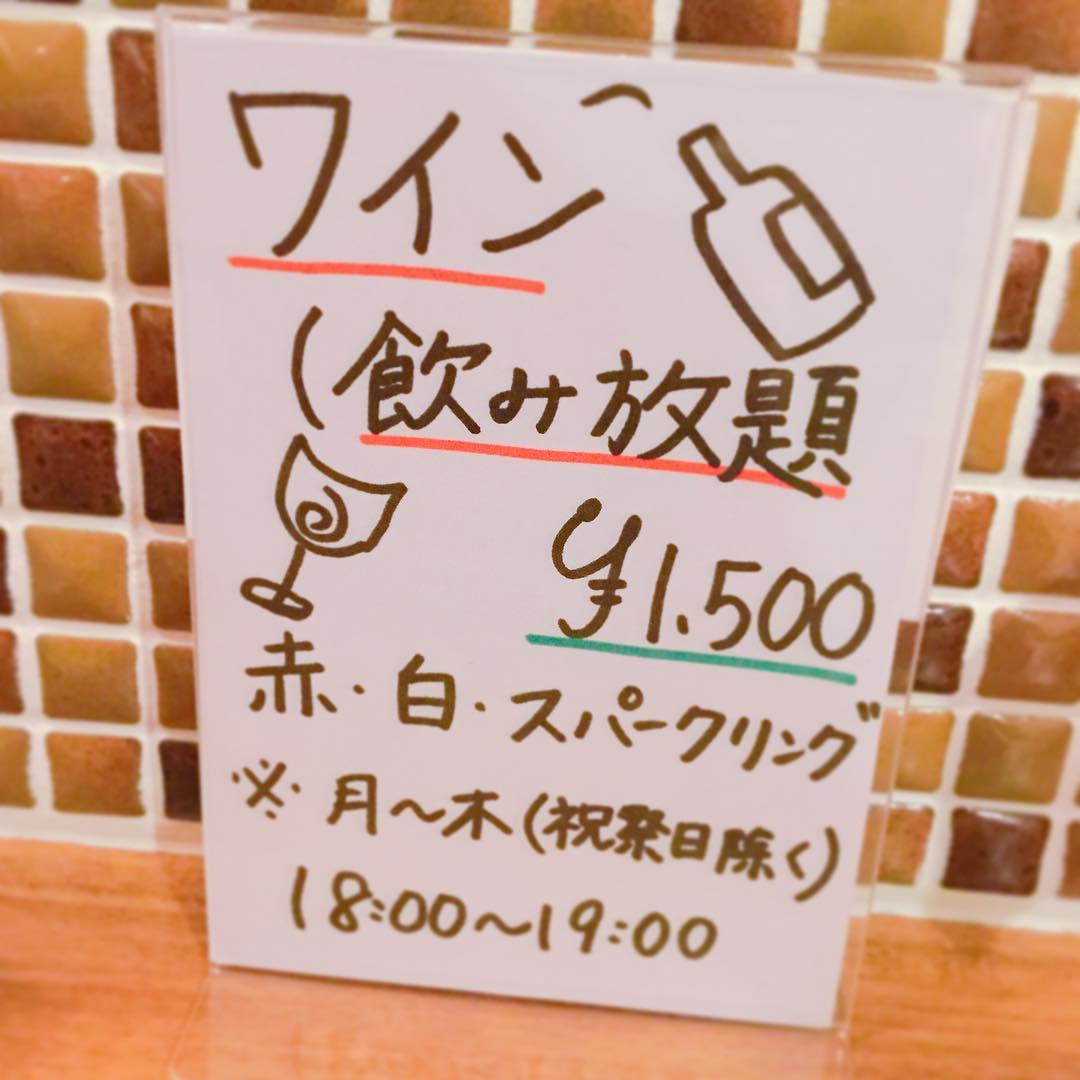 ワイン
(飲み放題
¥1.500
赤・白・スパークリング
※ 月〜木(祝祭日除く)
18:00〜19:00